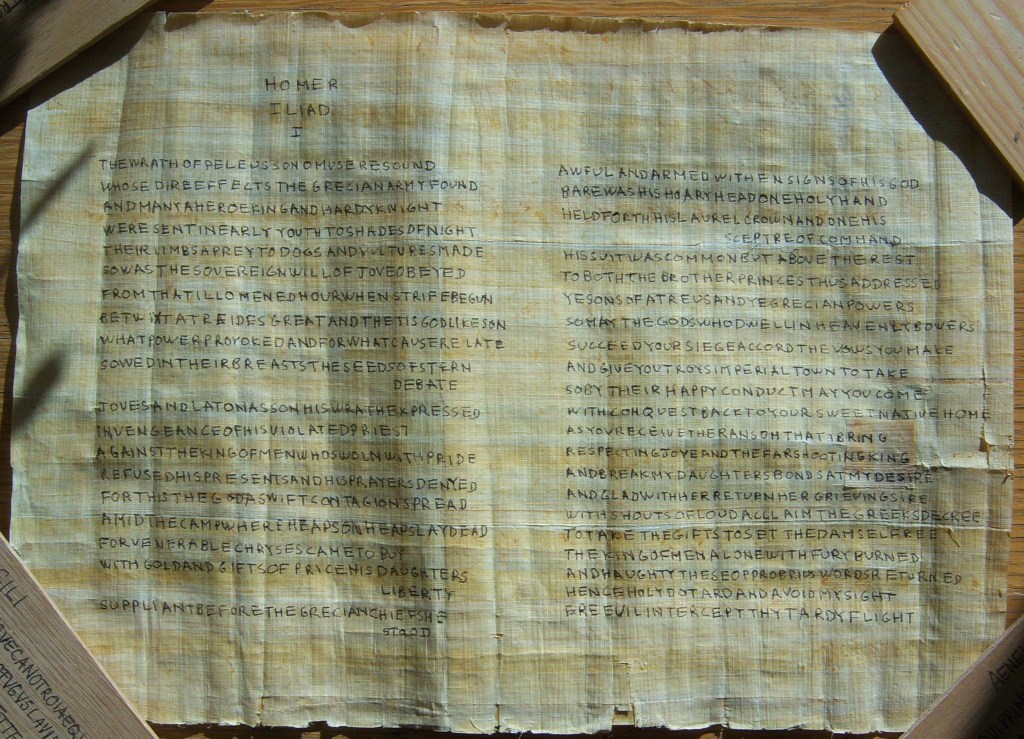 HOMER
ILIAD
I
THEWRATHOFPELEUSSONOMUSERESOUND
WHOSEDIREEFFECTSTHEGRECIANARMYFOUND
ANDMANYAHEROEKINGANDHARDYKNIGHT
WERESENTINEARLYYOUTHTOSHADESOFNIGHT
THEIRLIMBSAPREYTODOGSANDVULTURESMADE
SOWASTHESOVEREIGNWILLOFJOVEOBEYED
FROMTHATILLOMENEDHOURWHENSTRIFEBEGUN
BETWIXTATREIDESGREATANDTHETISGODLIKESON
WHATPOWERPROVOKEDANDFORWHATCAUSERELATE
SOWEDINTHEIRBREASTSTHESEEDSOFSTERN
DEBATE
JOVESANDLATONASSONHISWRATHEXPRESSED
INVENGEANCEOFHISVIOLATEDPRIEST
AGAINSTTHEKINGOFMENWHOSWOLNWITHPRIDE
REFUSEDHISPRESENTSANDHISPRAYERSDENYED
FORTHISTHEGODASWIFTCONTAGIONSPREAD
AMIDTHECAMPWHEREHEAPSONHEAPSLAYDEAD
FORVENERABLECHRYSESCAMETOBUY
WITHGOLDANDGIFTSOFPRICEHISDAUGHTERS
LIBERTY
SUPPLIANTBEFORETHEGRECIANCHIEFSHE
STOOD
AWFULANDARMEDWITHENSIGNSOFHISGOD
BAREWASHISHOARYHEADONEHOLYHAND
HELDFORTHHISLAURELCROWNANDONEHIS
SCEPTREOFCOMMAND
HISSUITWASCOMMONBUTABOVETHEREST
TOBOTHTHEBROTHERPRINCESTHUSADDRESSED
YESONSOFATREUSANDYEGRECIANPOWERS
SOMAYTHEGODSWHODWELLINHEAVENLYBOWERS
SUCCEEDYOURSIEGEACCORDTHEVOWSYOUMAKE
ANDGIVEYOUTROYSIMPERIALTOWNTOTAKE
SOBYTHEIRHAPPYCONDUCTMAYYOUCOME
WITHCONQUESTBACKTOYOURSWEETNATIVEHOME
ASYOURECEIVETHERANSOMTHATIBRING
RESPECTINGJOVEANDTHEFARSHOOTINGKING
ANDBREAKMYDAUGHTERSBONDSATMYDESIRE
ANDGLADWITHHERRETURNHERGRIEVINGSIRE
WITHSHOUTSOFLOUDACLLAIMTHEGREEKSDECREE
TOTAKETHEGIFTSTOSETTHEDAMSELFREE
THEKINGOFMENALONEWITHFURYBURNED
ANDHAUGHTYTHESEOPPROPPIUSWORDSRETURNED
HENCEHOLYDOTARDANDAVOIDMYSIGHT
EREEVILINTERCEPTTHYTARDYFLIGHT